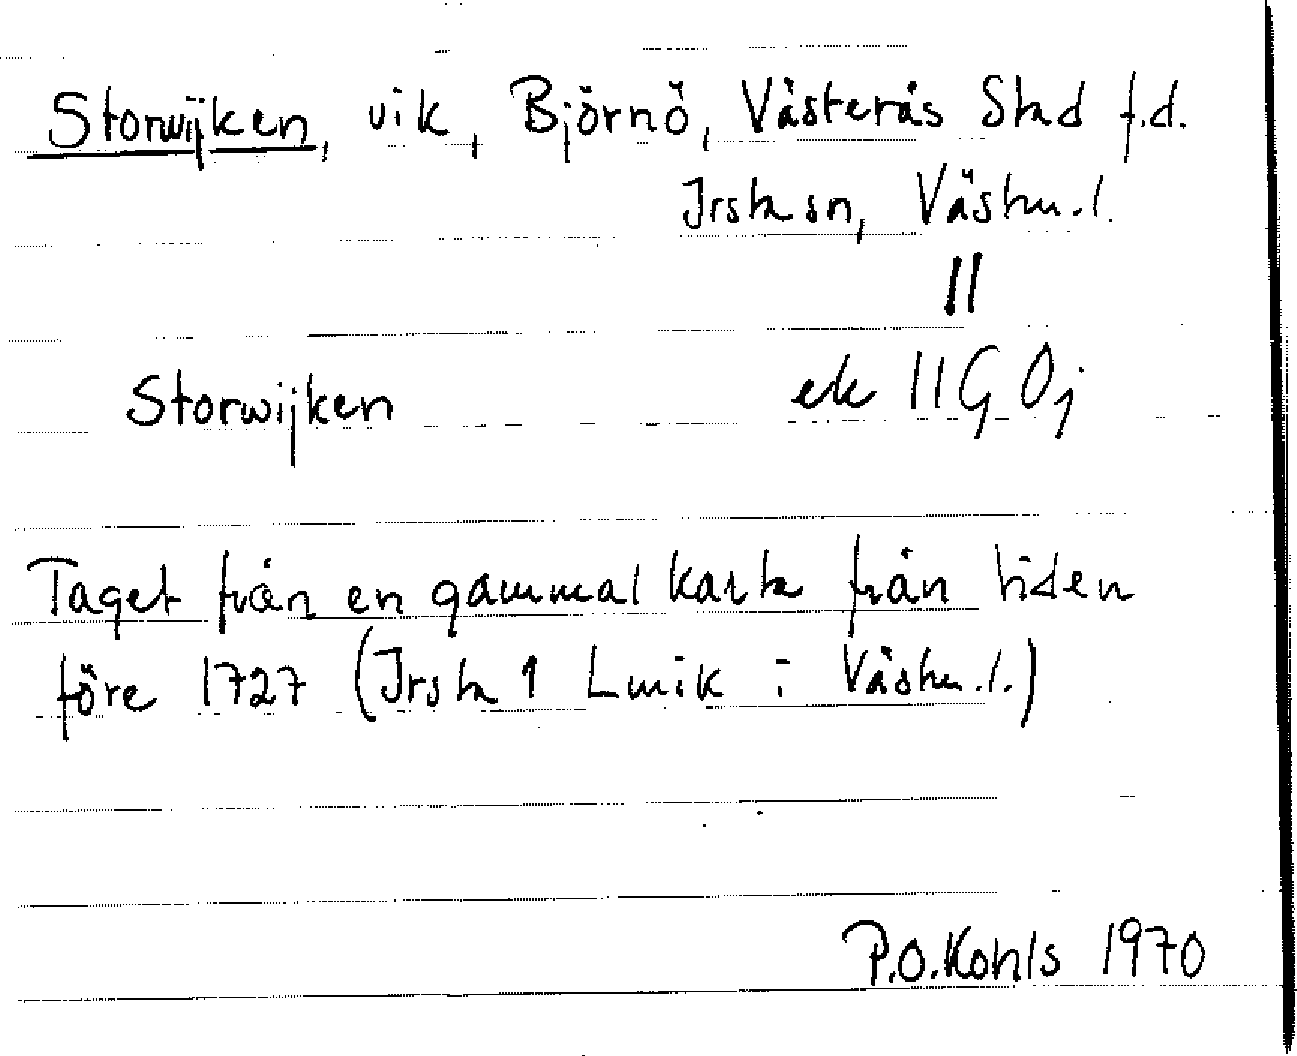 Storwijken, vik, Björnö, Västerås Stad f.d.
Irsta sn, Västm.l.
||
Storwijken ek 11G 0j
Taget från en gammal karta från tiden
före 1727 (Irsta 1 Lmik i Västm.l.)
P.O.Kohls 1970